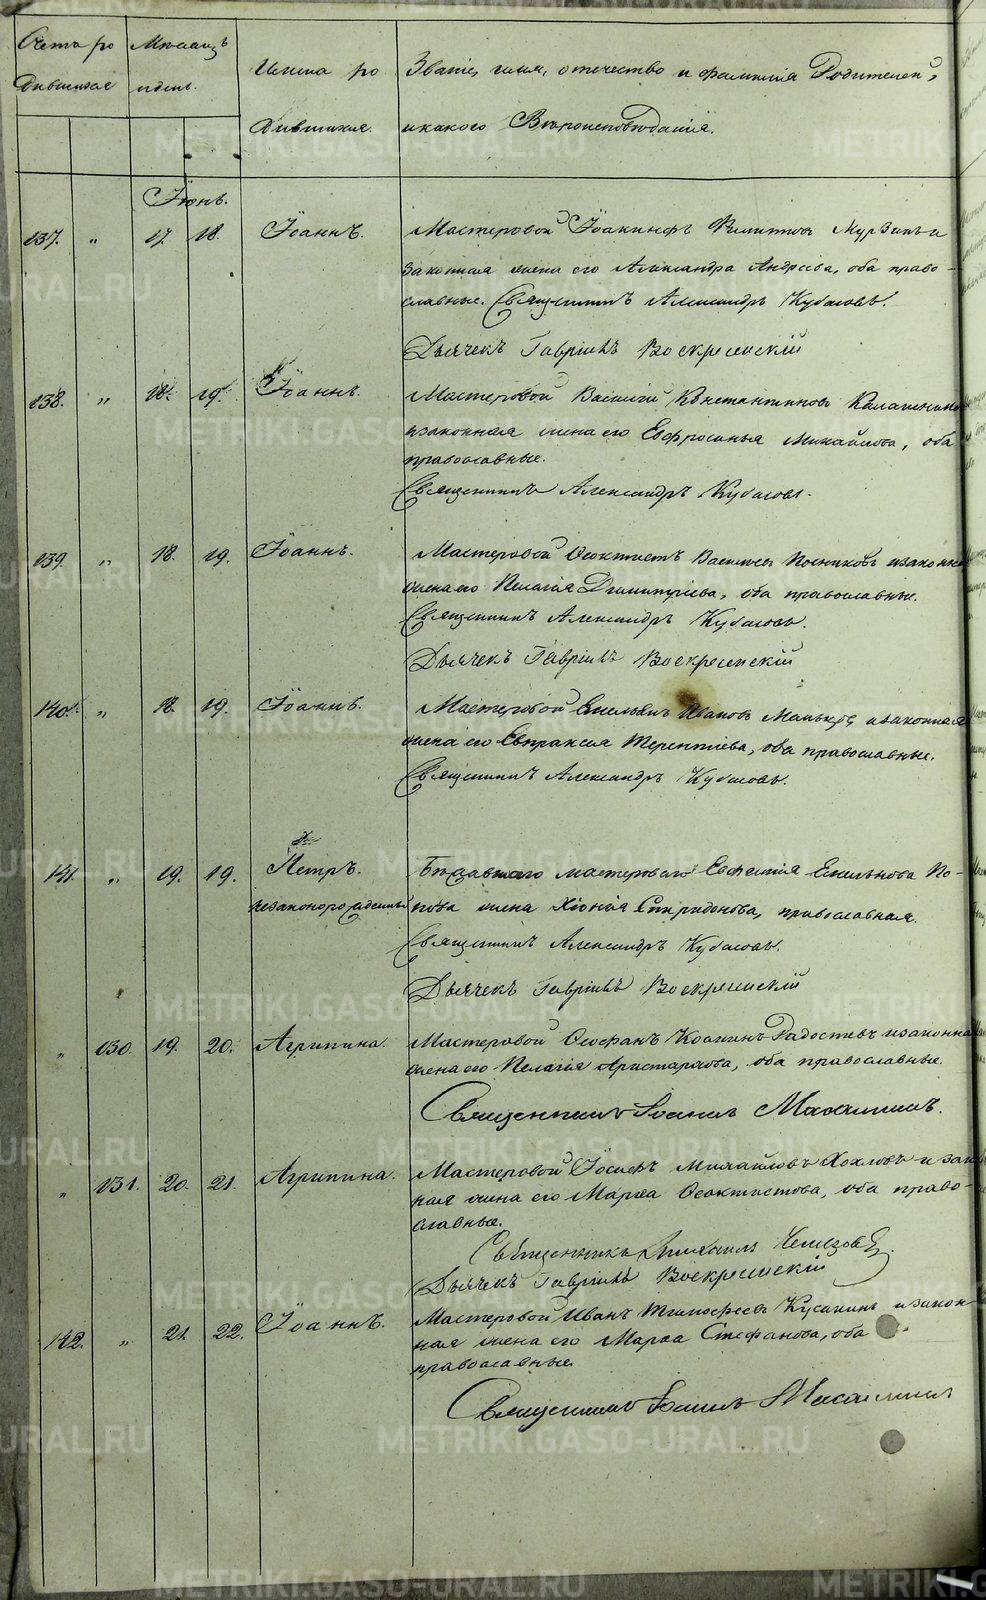 Счетъ ро Мѣсяцъ
дившихся и день.
Имена ро
дившихся.
Званіе, имя, отечество и фамилія Родителей,
и какого Вѣроисповѣданія.
Іюнь.
137. " 17. 18. Іоаннъ. Мастеровой Іоакинфъ Филиповъ Мурзинъ и
законная жена его Александра Андреева, оба право-
славные. Священникъ Александръ Кубасовъ.
Дьячекъ Гавріилъ Воскресенскій
138. " 18. 19. Іоаннъ. Мастеровой Василій Константиновъ
и законная жена его Евфросинья Михайлова, оба
православные.
Священникъ Александръ Кубасовъ.
139. " 18. 19. Іоаннъ. Мастеровой Ѳеоктистъ Васильевъ Посниковъ и законная
жена его Пелагія Димитріева, оба православные.
Священникъ Александръ Кубасовъ.
Дьячекъ Гавріилъ Воскресенскій
140. " 18. 19. Іоаннъ. Мастеровой Емельянъ Ивановъ и законная
жена его Евпраксия Терентіева, оба православные.
Священникъ Александръ Кубасовъ.
141. " 19. 19. Петръ. Бѣжавшаго мастерового Евфимія Емельянова По-
незаконорожденный пова жена Хіонія Спиридонова, православная.
Священникъ Александръ Кубасовъ.
Дьячекъ Гавріилъ Воскресенскій
" 130. 19. 20. Агрипина. Мастеровой Ѳеофанъ Радостевъ и законная
жена его Пелагія Аристархова, оба православные.
Священникъ Іоаннъ
" 131. 20. 21. Агрипина. Мастеровой Іосифъ Михайловъ Хохловъ и закон
ная жена его Марѳа Ѳеоктистова, оба право-
славные.
Священникъ
Дьячекъ Гавріилъ Воскресенскій
142. " 21. 22. Іоаннъ. Мастеровой Иванъ Тимофеевъ Кусакинъ и закон-
ная жена его Марѳа Стефанова, оба
православные.
Священникъ Іоаннъ
METRIKI.GASO-URAL.RU